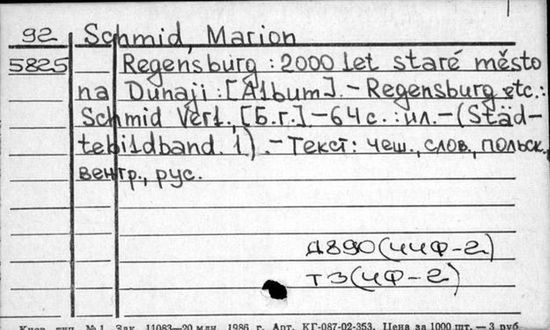 92 Schmid, Marion
5825 Regensburg : 2000 let staré město
na Dunaji : [Album]. – Regensburg etc.:
Schmid Verl., [Б.г.] – 64 с. : ил. – (Städ-
tebildband. 1). – Текст: чеш., слов., польск.,
венгр., рус.
Д890(ЧЧФ-2)
Т3(ЧФ-2)
тип. № 1. Зак. 11083—20 млн. 1986 г. Арт. КГ-087-02-353. Цена за 1000 шт. — 3 руб